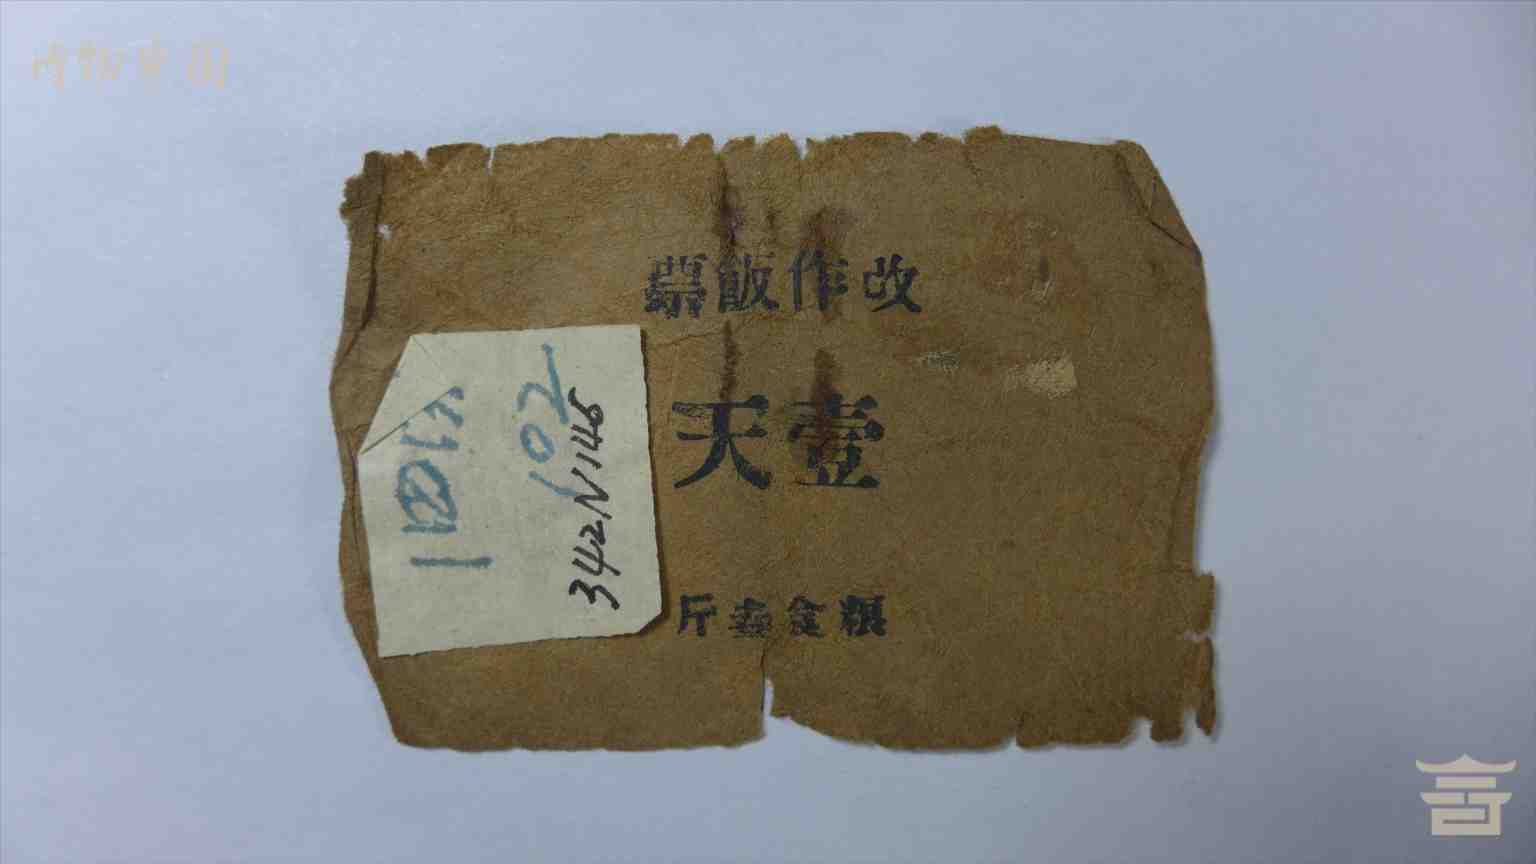 博物中国
改作飯票
壹天
粮食壹斤
102
342N146